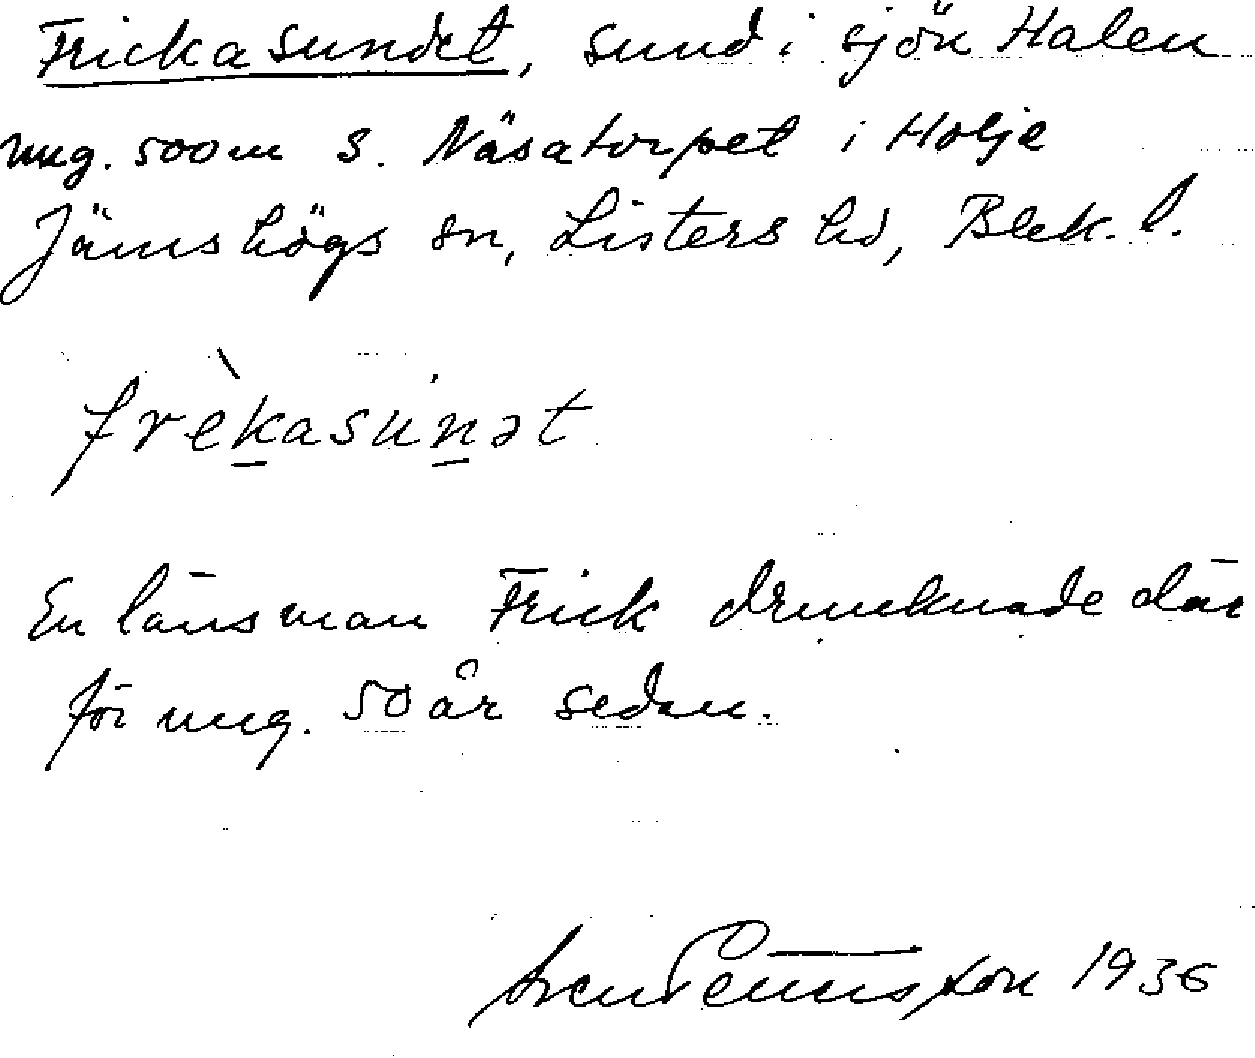 Frickasundet, sund i sjön Halen
ung. 500 m S. Näsatorpet i Holje
Jämshögs sn, Listers hd, Blek. l.
frèkasunət
En länsman Frick drunknade där
för ung. 50 år sedan.
Sven Benson 1936